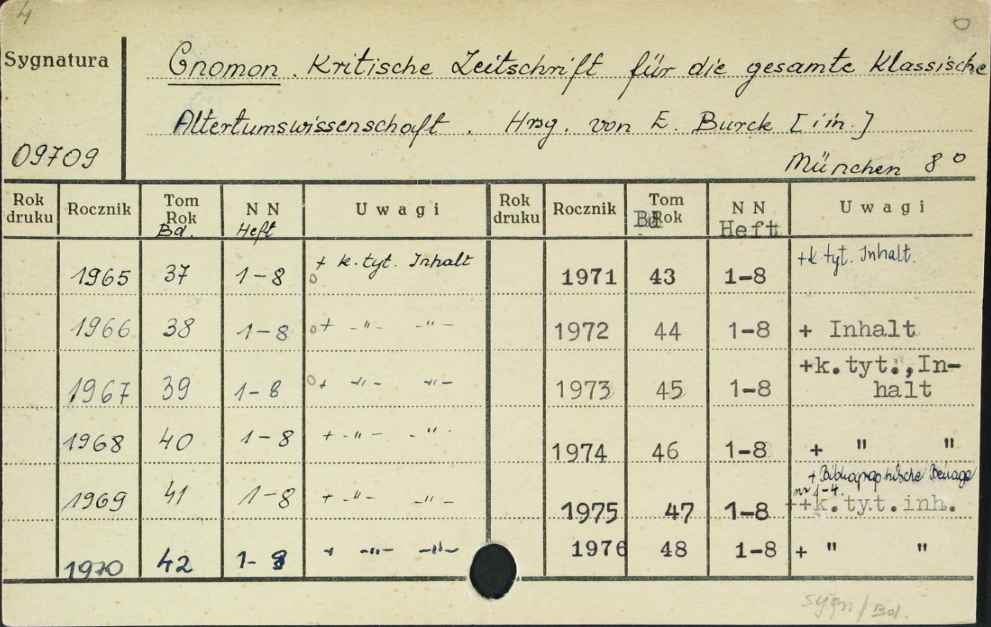 4
Sygnatura
Gnomon. Kritische Zeitschrift für die gesamte Klassische
Altertumswissenschaft. Hrsg. von E. Burck [i in.]
09709
München 8°
Rok druku Rocznik Tom Rok Bd. NN Heft Uwagi Rok druku Rocznik Tom Rok Bd NN Heft Uwagi
1965 37 1-8 + k. tyt. Inhalt 1971 43 1-8 + k tyt. Inhalt.
1966 38 1-8 + -"- -"- 1972 44 1-8 + Inhalt
1967 39 1-8 + -"- -"- 1973 45 1-8 +k.tyt.,In-
halt
1968 40 1-8 + -"- -"- 1974 46 1-8 + " "
+ Bibliographische Beilage
nr 1-4.
1969 41 1-8 + -"- -"- 1975 47 1-8 ++k.tyt.inh.
1970 42 1-8 + -"- -"- 1976 48 1-8 + " "
sygn/Bd.